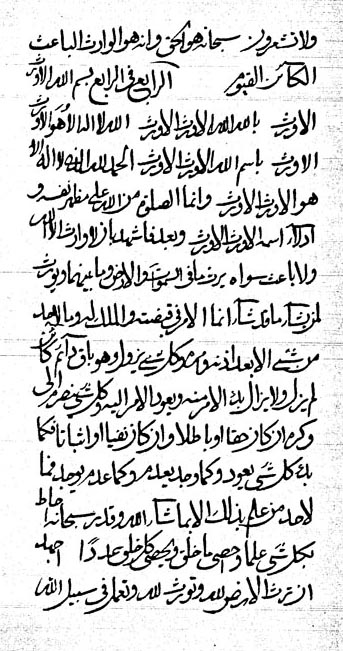 ولا تشعرون سبحانه هو الحق وانه هو الوارث الباعث
الكائن القيور الرابع في الرابع بسم الله الاورث
الاورث بالله الله الاورث الاورث الله لا اله الا هو الاورث
الاورث باسم الله الاورث الاورث الحمد لله الذي لا اله الا
هو الاورث الاورث وانما الصلوة من الله على مظهر نفسه و
ادلاء اسمه الاورث الاورث وبعد فاشهد بان لا وارث الا الله
ولا باعث سواه يرث ما في السموات والارض وما بينهما ويورث
لمن يشاء ما قد شاء انما الامر في قبضته والملك لديه وما لاحد
من شئ الا بعد اذنه وكل شئ يزول وهو باق دائم كان
لم يزل ولا يزال بدء الامر منه ويعود الامر اليه وكل شئ الى
وكره ان كان حقا او باطلا وان كان نفيا او اثباتا فكما
بدء كل شئ يعود وكما وجد يعدم وكما عدم يوجد فما
لاحد من علم بذلك الا بما شاء الله وقدر سبحانه احاط
بكل شئ علما واحصى ما خلق ويحصى كل خلق عددا
ان ترث الارض لله وتورث لله وتعمل في سبيل الله